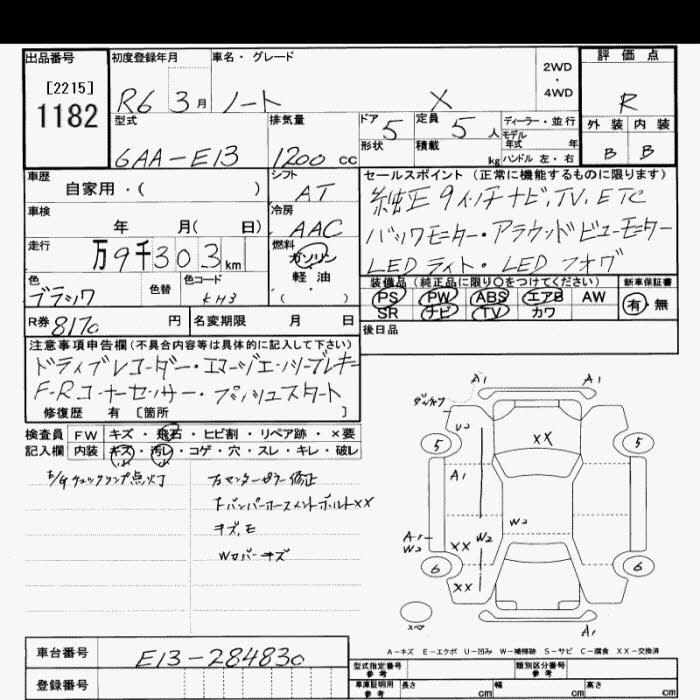 出品番号 初度登録年月 車名・グレード 2WD・4WD 評価点
[2215] 1182
R6 3月 ノート X R
型式 排気量 ドア 5 定員 5人 ディーラー・並行 外装 内装
6AA-E13 1200cc 形状 積載 kg モデル年式 年 B B
ハンドル 左・右
車歴 シフト セールスポイント (正常に機能するものに限ります)
自家用・( ) AT 純正9インチナビ、TV、ETC
車検 冷房 バックモニター・アラウンドビューモニター
年 月( 日) AAC LEDライト・LEDフォグ
走行 燃料 装備品 (純正品に限り○をつけてください) 新車保証書
万9千303km ガソリン PS PW ABS エアB AW 有・無
軽・油 SR ナビ TV カワ
( )
色 色替 色コード 後日品
ブラック KH3
R券 8170円 名変期限 月 日
注意事項申告欄(不具合内容等は具体的に記入して下さい)
ドライブレコーダー・エマージェンシーブレーキ
F-Rコーナーセンサー・プッシュスタート
修復歴 有 [箇所 ]
検査員 FW キズ・飛石・ヒビ割・リペア跡・×要
記入欄 内装 キズ・汚レ・コゲ・穴・スレ・キレ・破レ
チェックランプ点灯
センターピラー修正
キズ、
Wカバーキズ
A1 A1
U2 XX
5 5
A1
A1 W2 W2
W2 XX
6 XX 6
スペア A1
A-キズ E-エクボ U-凹み W-補修跡 S-サビ C-腐食 XX-交換済
車台番号 E13-284830 型式指定番号 参考 類別区分番号 参考
登録番号 車庫証明用 参考 長さ cm 幅 cm 高さ cm